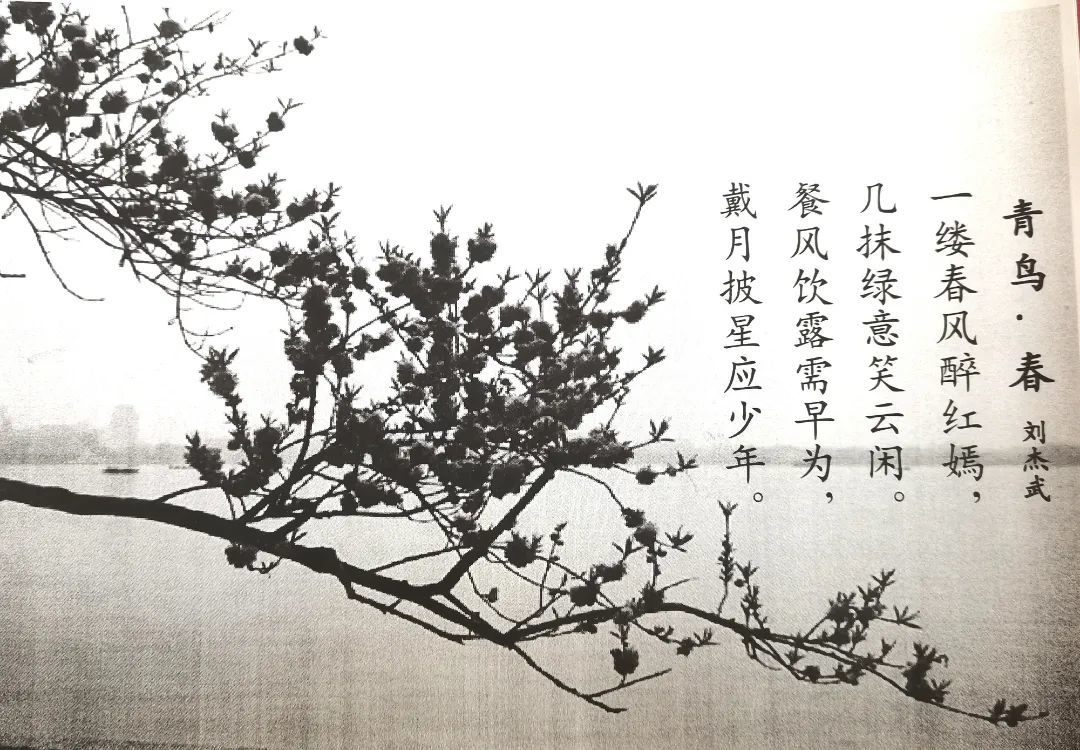 青鸟·春 刘杰武
一缕春风醉红嫣，
几抹绿意笑云闲。
餐风饮露需早为，
戴月披星应少年。